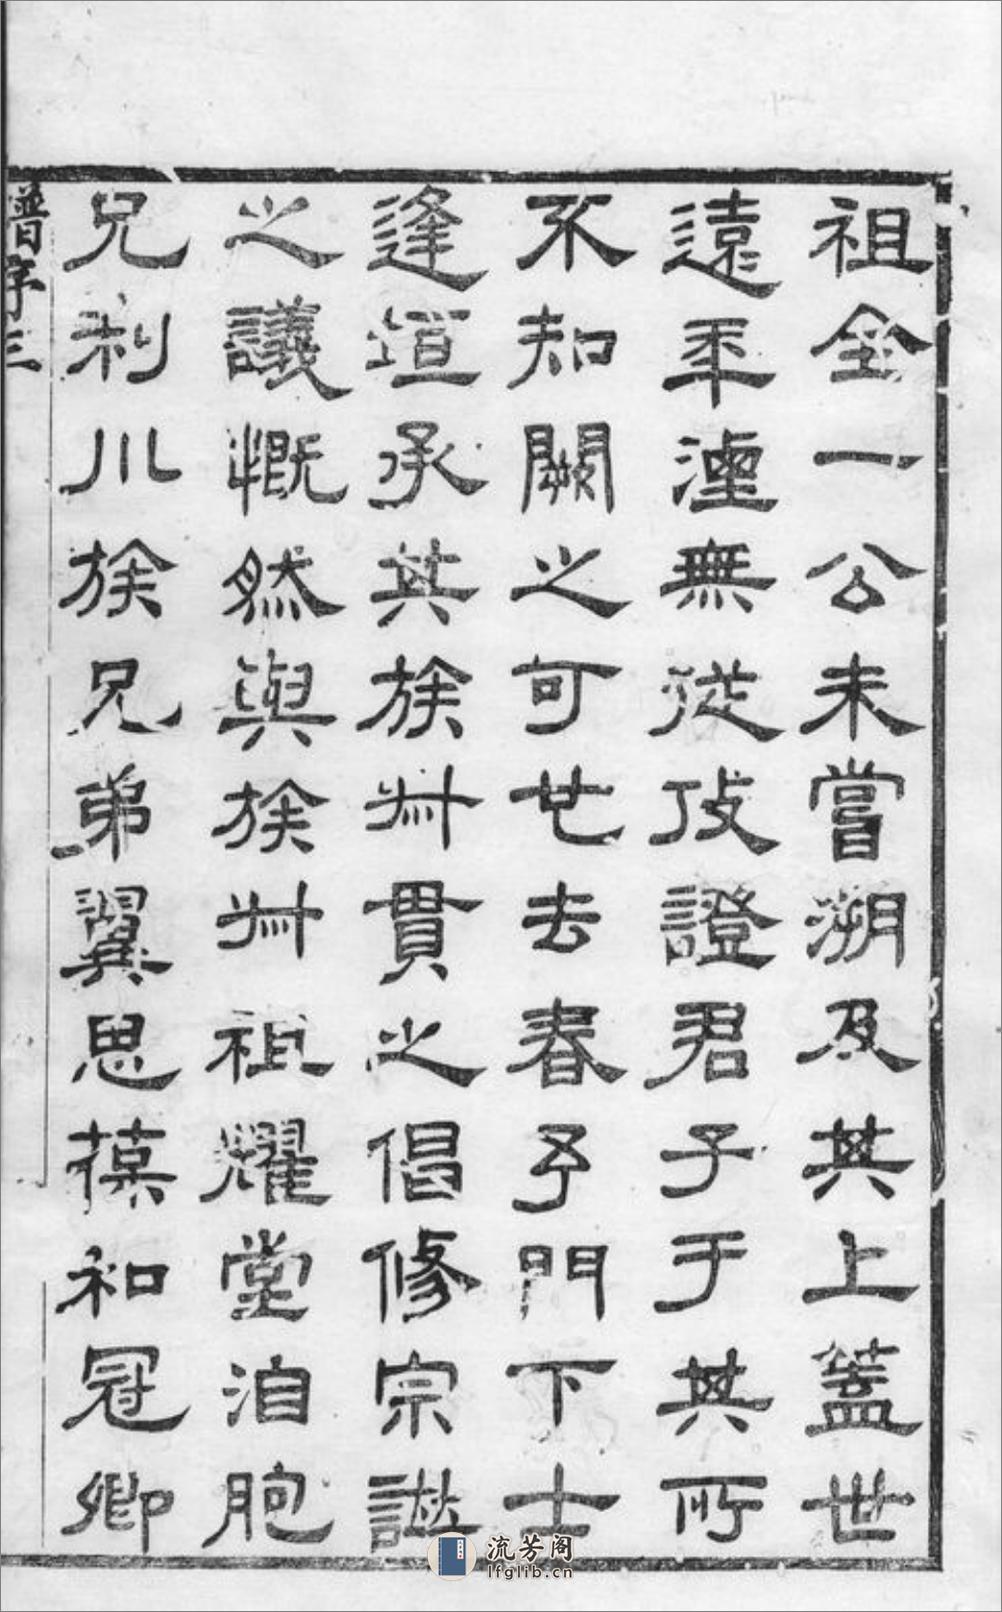 祖全一公未嘗溯及其上蓋世
遠年湮無從攷證君子于其所
不知闕之可也去春予門下士
逢垣承其族叔貫之倡修宗譜
之議慨然與族叔祖耀堂洎胞
兄利川族兄弟翼思葆和冠卿
譜序三
流芳阁
lfglib.cn